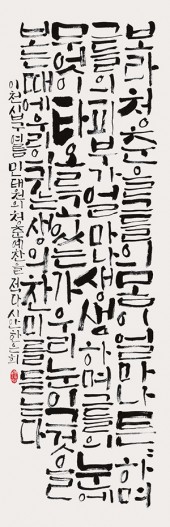 보라 청춘을 그들의 몸이 얼마나 튼튼하며
그들의 피부가 얼마나 생생하며 그들의 눈에
무엇이 타오르고 있는가 우리 눈이 그것을
보는 때에 우리 귀는 생의 찬미를 듣는다
여름 민태원의 청춘예찬을 적다